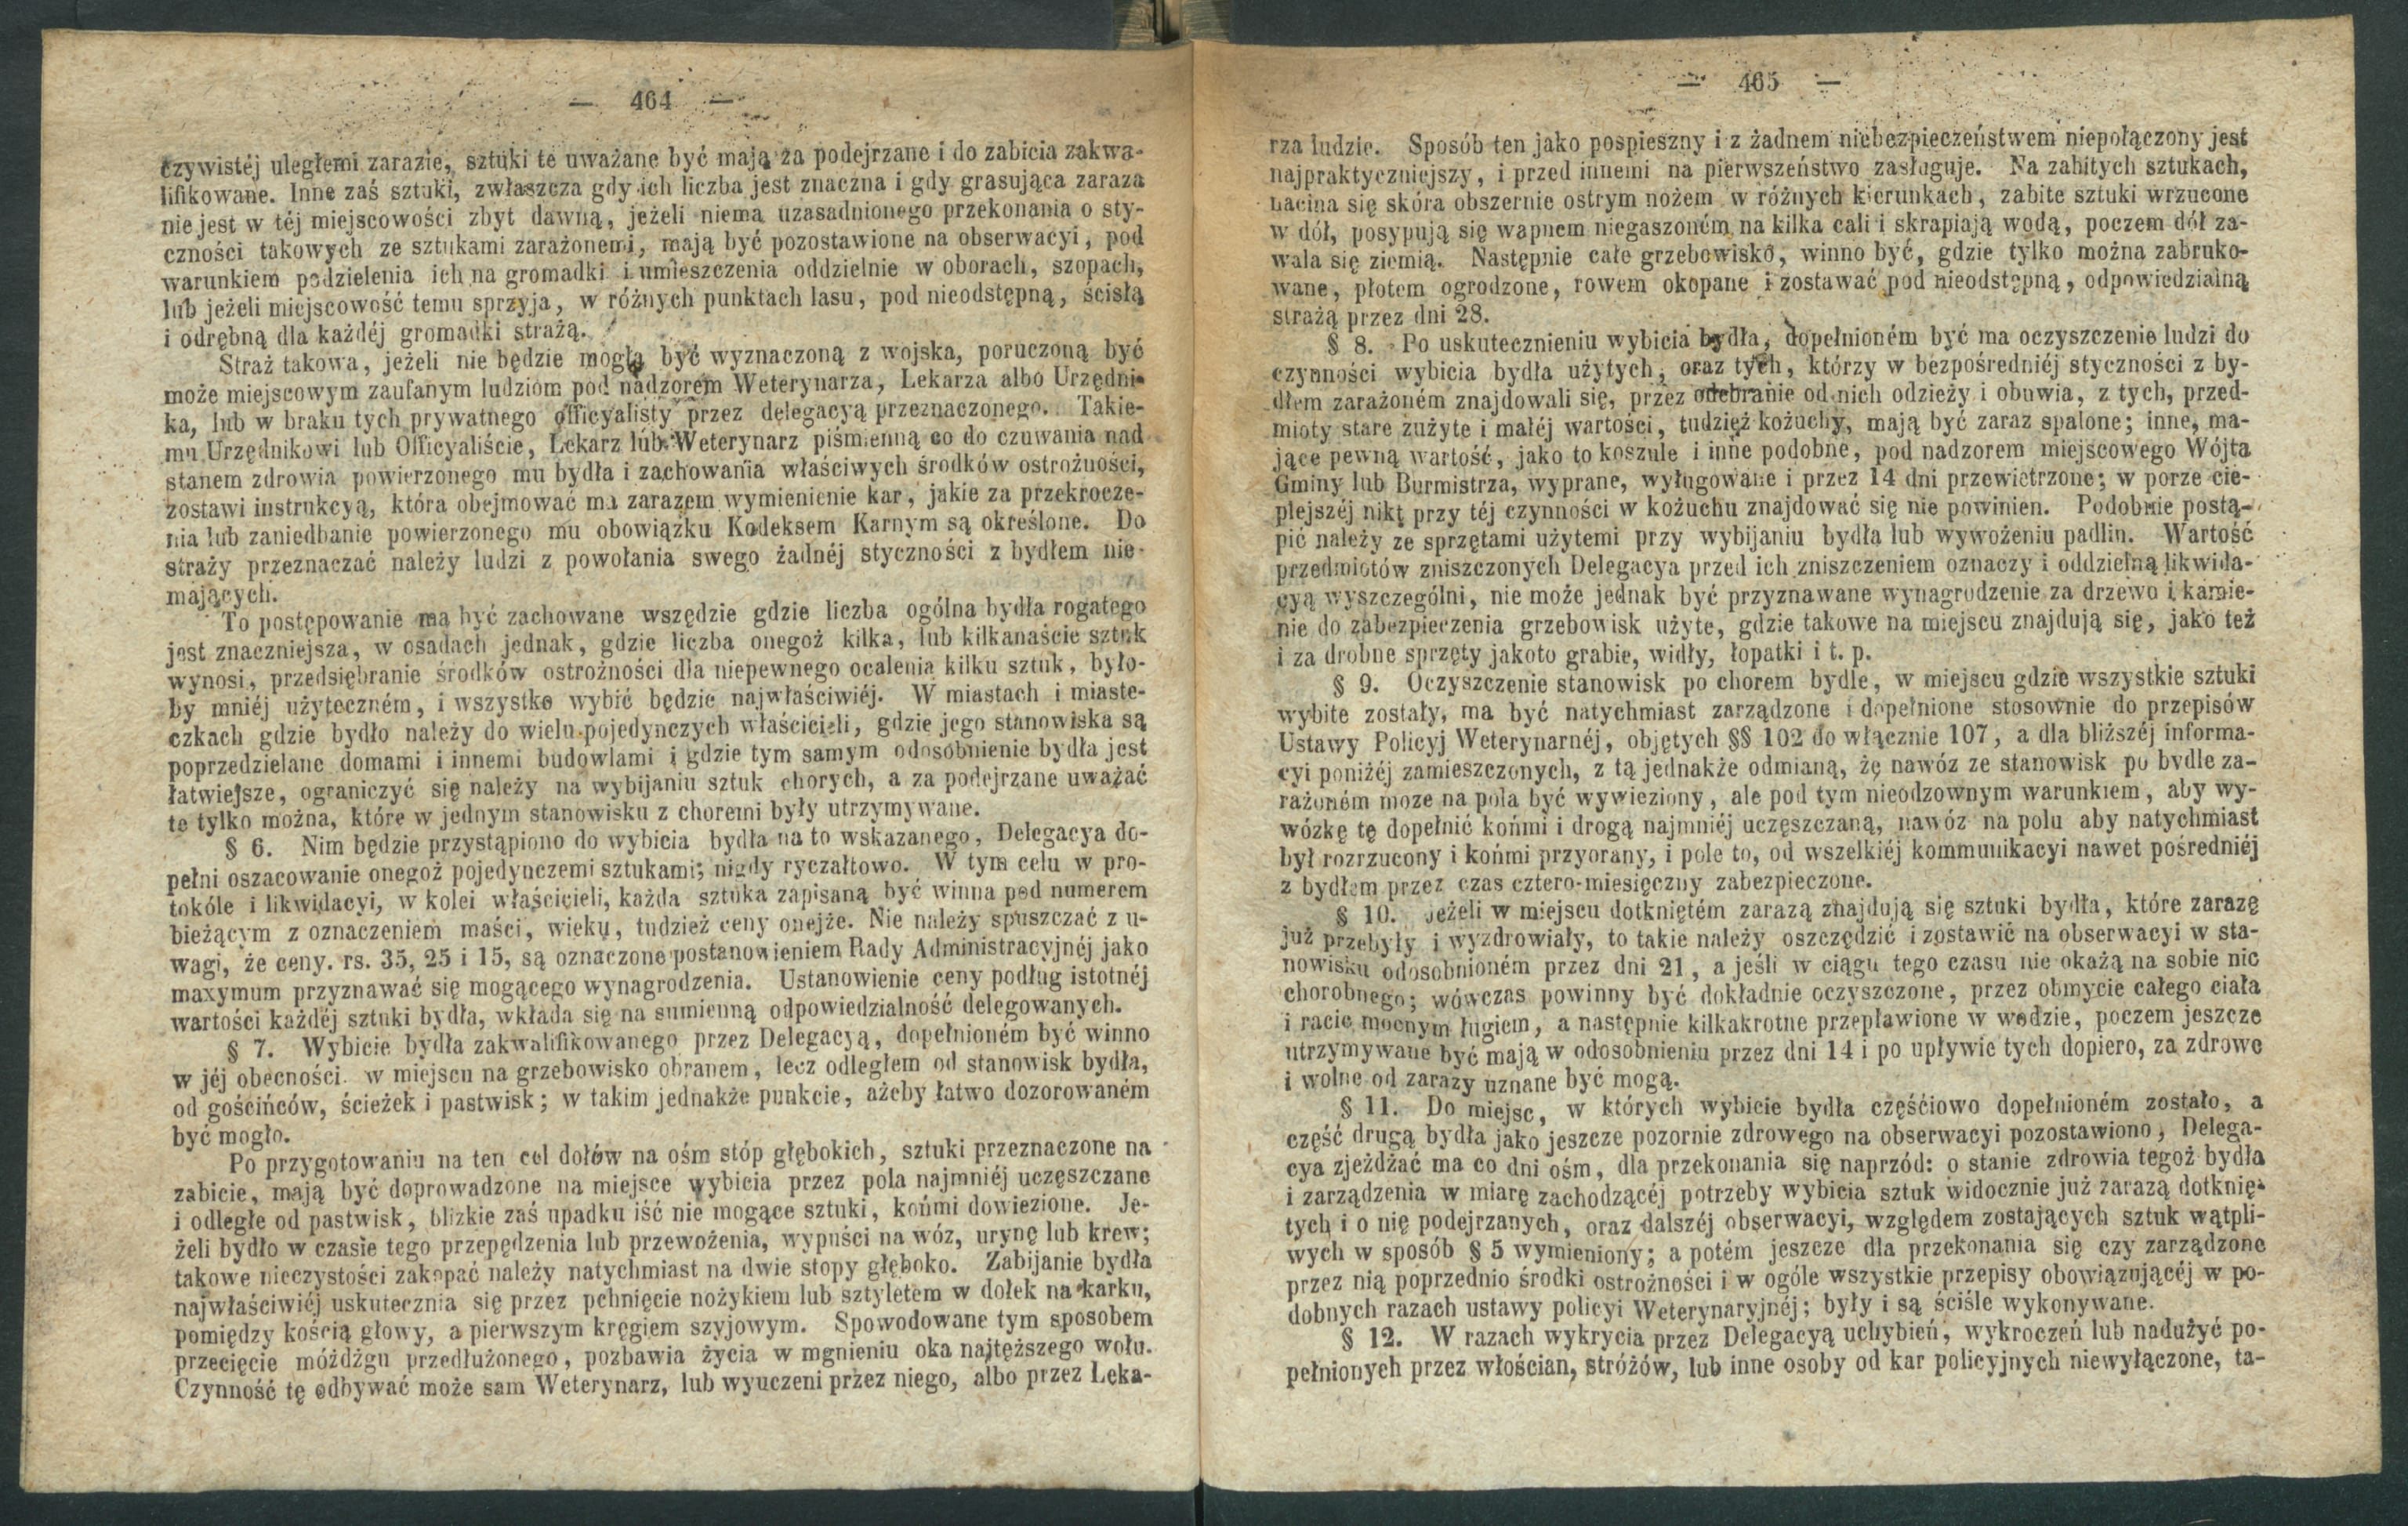 — 464 —
czywistéj uległemi zarazie, sztuki te uważane być mają za podejrzane i do zabicia zakwa-
lifikowane. Inne zaś sztuki, zwłaszcza gdy ich liczba jest znaczna i gdy grasująca zaraza
nie jest w téj miejscowości zbyt dawną, jeżeli niema uzasadnionego przekonania o sty-
czności takowych ze sztukami zarażonemi, mają być pozostawione na obserwacyi, pod
warunkiem podzielenia ich na gromadki i umieszczenia oddzielnie w oborach, szopach,
lub jeżeli miejscowość temu sprzyja, w różnych punktach lasu, pod nieodstępną, ścisłą
i odrębną dla każdéj gromadki strażą.
Straż takowa, jeżeli nie będzie mogła być wyznaczoną z wojska, poruczoną być
może miejscowym zaufanym ludziom pod nadzorem Weterynarza, Lekarza albo Urzędni-
ka, lub w braku tych prywatnego officyalisty przez delegacyą przeznaczonego. Takie-
mu Urzędnikowi lub Officyaliście, Lekarz lub Weterynarz piśmienną co do czuwania nad
stanem zdrowia powierzonego mu bydła i zachowania właściwych środków ostrożności,
zostawi instrukcyą, która obejmować ma zarazem wymienienie kar, jakie za przekrocze-
nia lub zaniedbanie powierzonego mu obowiązku Kodeksem Karnym są określone. Do
straży przeznaczać należy ludzi z powołania swego żadnéj styczności z bydłem nie-
mających.
To postępowanie ma być zachowane wszędzie gdzie liczba ogólna bydła rogatego
jest znaczniejsza, w osadach jednak, gdzie liczba onegoż kilka, lub kilkanaście sztuk
wynosi, przedsiębranie środków ostrożności dla niepewnego ocalenia kilku sztuk, było-
by mniéj użyteczném, i wszystko wybić będzie najwłaściwiéj. W miastach i miaste-
czkach gdzie bydło należy do wielu pojedynczych właścicieli, gdzie jego stanowiska są
poprzedzielane domami i innemi budowlami i gdzie tym samym odosobnienie bydła jest
łatwiejsze, ograniczyć się należy na wybijaniu sztuk chorych, a za podejrzane uważać
te tylko można, które w jednym stanowisku z choremi były utrzymywane.
§ 6. Nim będzie przystąpiono do wybicia bydła na to wskazanego, Delegacya do-
pełni oszacowanie onegoż pojedynczemi sztukami; nigdy ryczałtowo. W tym celu w pro-
tokóle i likwidacyi, w kolei właścicieli, każda sztuka zapisaną być winna pod numerem
bieżącym z oznaczeniem maści, wieku, tudzież ceny onejże. Nie należy spuszczać z u-
wagi, że ceny. rs. 35, 25 i 15, są oznaczone postanowieniem Rady Administracyjnéj jako
maxymum przyznawać się mogącego wynagrodzenia. Ustanowienie ceny podług istotnéj
wartości każdéj sztuki bydła, wkłada się na sumienną odpowiedzialność delegowanych.
§ 7. Wybicie bydła zakwalifikowanego przez Delegacyą, dopełnioném być winno
w jéj obecności w miejscu na grzebowisko obranem, lecz odległem od stanowisk bydła,
od gościńców, ścieżek i pastwisk; w takim jednakże punkcie, ażeby łatwo dozorowaném
być mogło.
Po przygotowaniu na ten cel dołów na ośm stóp głębokich, sztuki przeznaczone na
zabicie, mają być doprowadzone na miejsce wybicia przez pola najmniéj uczęszczane
i odległe od pastwisk, blizkie zaś upadku iść nie mogące sztuki, końmi dowiezione. Je-
żeli bydło w czasie tego przepędzenia lub przewożenia, wypuści na wóz, urynę lub krew;
takowe nieczystości zakopać należy natychmiast na dwie stopy głęboko. Zabijanie bydła
najwłaściwiéj uskutecznia się przez pchnięcie nożykiem lub sztyletem w dołek na karku,
pomiędzy kością głowy, a pierwszym kręgiem szyjowym. Spowodowane tym sposobem
przecięcie móżdżgu przedłużonego, pozbawia życia w mgnieniu oka najtęższego wołu.
Czynność tę odbywać może sam Weterynarz, lub wyuczeni przez niego, albo przez Leka-
— 465 —
rza ludzie. Sposób ten jako pospieszny i z żadnem niebezpieczeństwem niepołączony jest
najpraktyczniejszy, i przed innemi na pierwszeństwo zasługuje. Na zabitych sztukach,
nacina się skóra obszernie ostrym nożem w różnych kierunkach, zabite sztuki wrzucone
w dół, posypują się wapnem niegaszoném na kilka cali i skrapiają wodą, poczem dół za-
wala się ziemią. Następnie całe grzebowisko, winno być, gdzie tylko można zabruko-
wane, płotem ogrodzone, rowem okopane i zostawać pod nieodstępną, odpowiedzialną
strażą przez dni 28.
§ 8. Po uskutecznieniu wybicia bydła, dopełnioném być ma oczyszczenie ludzi do
czynności wybicia bydła użytych, oraz tych, którzy w bezpośredniéj styczności z by-
dłem zarażoném znajdowali się, przez odebranie od nich odzieży i obuwia, z tych, przed-
mioty stare zużyte i małéj wartości, tudzież kożuchy, mają być zaraz spalone; inne, ma-
jące pewną wartość, jako to koszule i inne podobne, pod nadzorem miejscowego Wójta
Gminy lub Burmistrza, wyprane, wyługowane i przez 14 dni przewietrzone; w porze cie-
plejszéj nikt przy téj czynności w kożuchu znajdować się nie powinien. Podobnie postą-
pić należy ze sprzętami użytemi przy wybijaniu bydła lub wywożeniu padlin. Wartość
przedmiotów zniszczonych Delegacya przed ich zniszczeniem oznaczy i oddzielną likwida-
cyą wyszczególni, nie może jednak być przyznawane wynagrodzenie za drzewo i kamie-
nie do zabezpieczenia grzebowisk użyte, gdzie takowe na miejscu znajdują się, jako też
i za drobne sprzęty jakoto grabie, widły, łopatki i t. p.
§ 9. Oczyszczenie stanowisk po chorem bydle, w miejscu gdzie wszystkie sztuki
wybite zostały, ma być natychmiast zarządzone i dopełnione stosownie do przepisów
Ustawy Policyj Weterynarnéj, objętych §§ 102 do włącznie 107, a dla bliższéj informa-
cyi poniżéj zamieszczonych, z tą jednakże odmianą, żę nawóz ze stanowisk po bydle za-
rażoném moze na pola być wywieziony, ale pod tym nieodzownym warunkiem, aby wy-
wózkę tę dopełnić końmi i drogą najmniéj uczęszczaną, nawóz na polu aby natychmiast
był rozrzucony i końmi przyorany, i pole to, od wszelkiéj kommunikacyi nawet pośredniéj
z bydłem przez czas cztero-miesięczny zabezpieczone.
§ 10. Jeżeli w miejscu dotkniętém zarazą znajdują się sztuki bydła, które zarazę
już przebyły i wyzdrowiały, to takie należy oszczędzić i zostawić na obserwacyi w sta-
nowisku odosobnioném przez dni 21, a jeśli w ciągu tego czasu nie okażą na sobie nic
chorobnego; wówczas powinny być dokładnie oczyszczone, przez obmycie całego ciała
i racic mocnym ługiem, a następnie kilkakrotne przepławione w wodzie, poczem jeszcze
utrzymywane być mają w odosobnieniu przez dni 14 i po upływie tych dopiero, za zdrowe
i wolne od zarazy uznane być mogą.
§ 11. Do miejsc, w których wybicie bydła częśćiowo dopełnioném zostało, a
część drugą bydła jako jeszcze pozornie zdrowego na obserwacyi pozostawiono, Delega-
cya zjeżdżać ma co dni ośm, dla przekonania się naprzód: o stanie zdrowia tegoż bydła
i zarządzenia w miarę zachodzącéj potrzeby wybicia sztuk widocznie już zarazą dotknię-
tych i o nię podejrzanych, oraz dalszéj obserwacyi, względem zostających sztuk wątpli-
wych w sposób § 5 wymieniony; a potém jeszcze dla przekonania się czy zarządzone
przez nią poprzednio środki ostrożności i w ogóle wszystkie przepisy obowiązującéj w po-
dobnych razach ustawy policyi Weterynaryjnéj; były i są ściśle wykonywane.
§ 12. W razach wykrycia przez Delegacyą uchybień, wykroczeń lub nadużyć po-
pełnionych przez włościan, stróżów, lub inne osoby od kar policyjnych niewyłączone, ta-